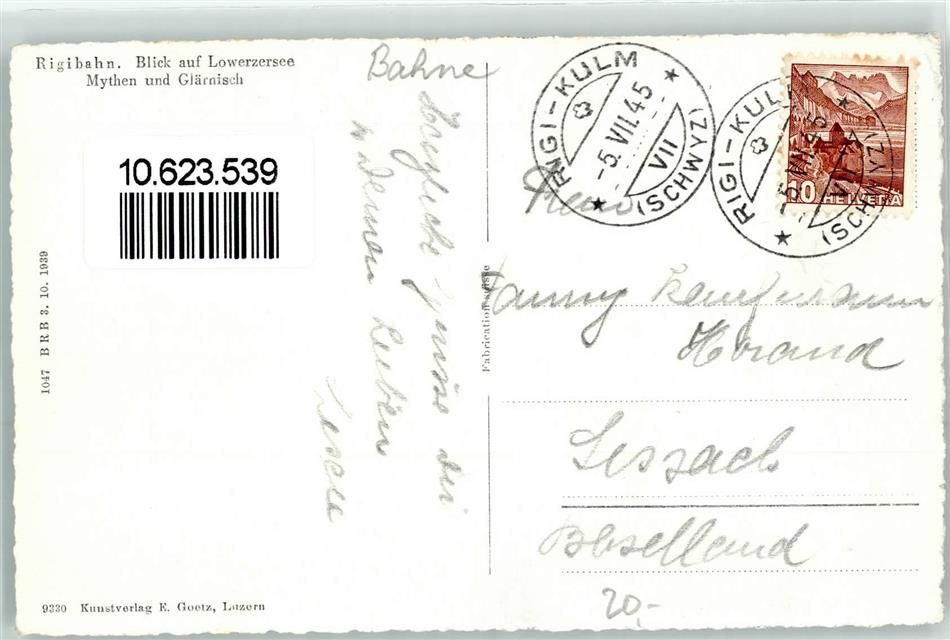 Rigibahn. Blick auf Lowerzersee
Mythen und Glärnisch
10.623.539
1047 BRB 3. 10. 1939
9330 Kunstverlag E. Goetz, Luzern
Bahne
Herzliche Grüsse dir
u. deinen Lieben
Fabrication suisse
RIGI-KULM
-5.VII.45
VII
(SCHWYZ)
RIGI-KULM
-5.VII.45
VII
(SCHWYZ)
10 HELVETIA
Fanny Kaufmann
Sissach
Baselland
20.-